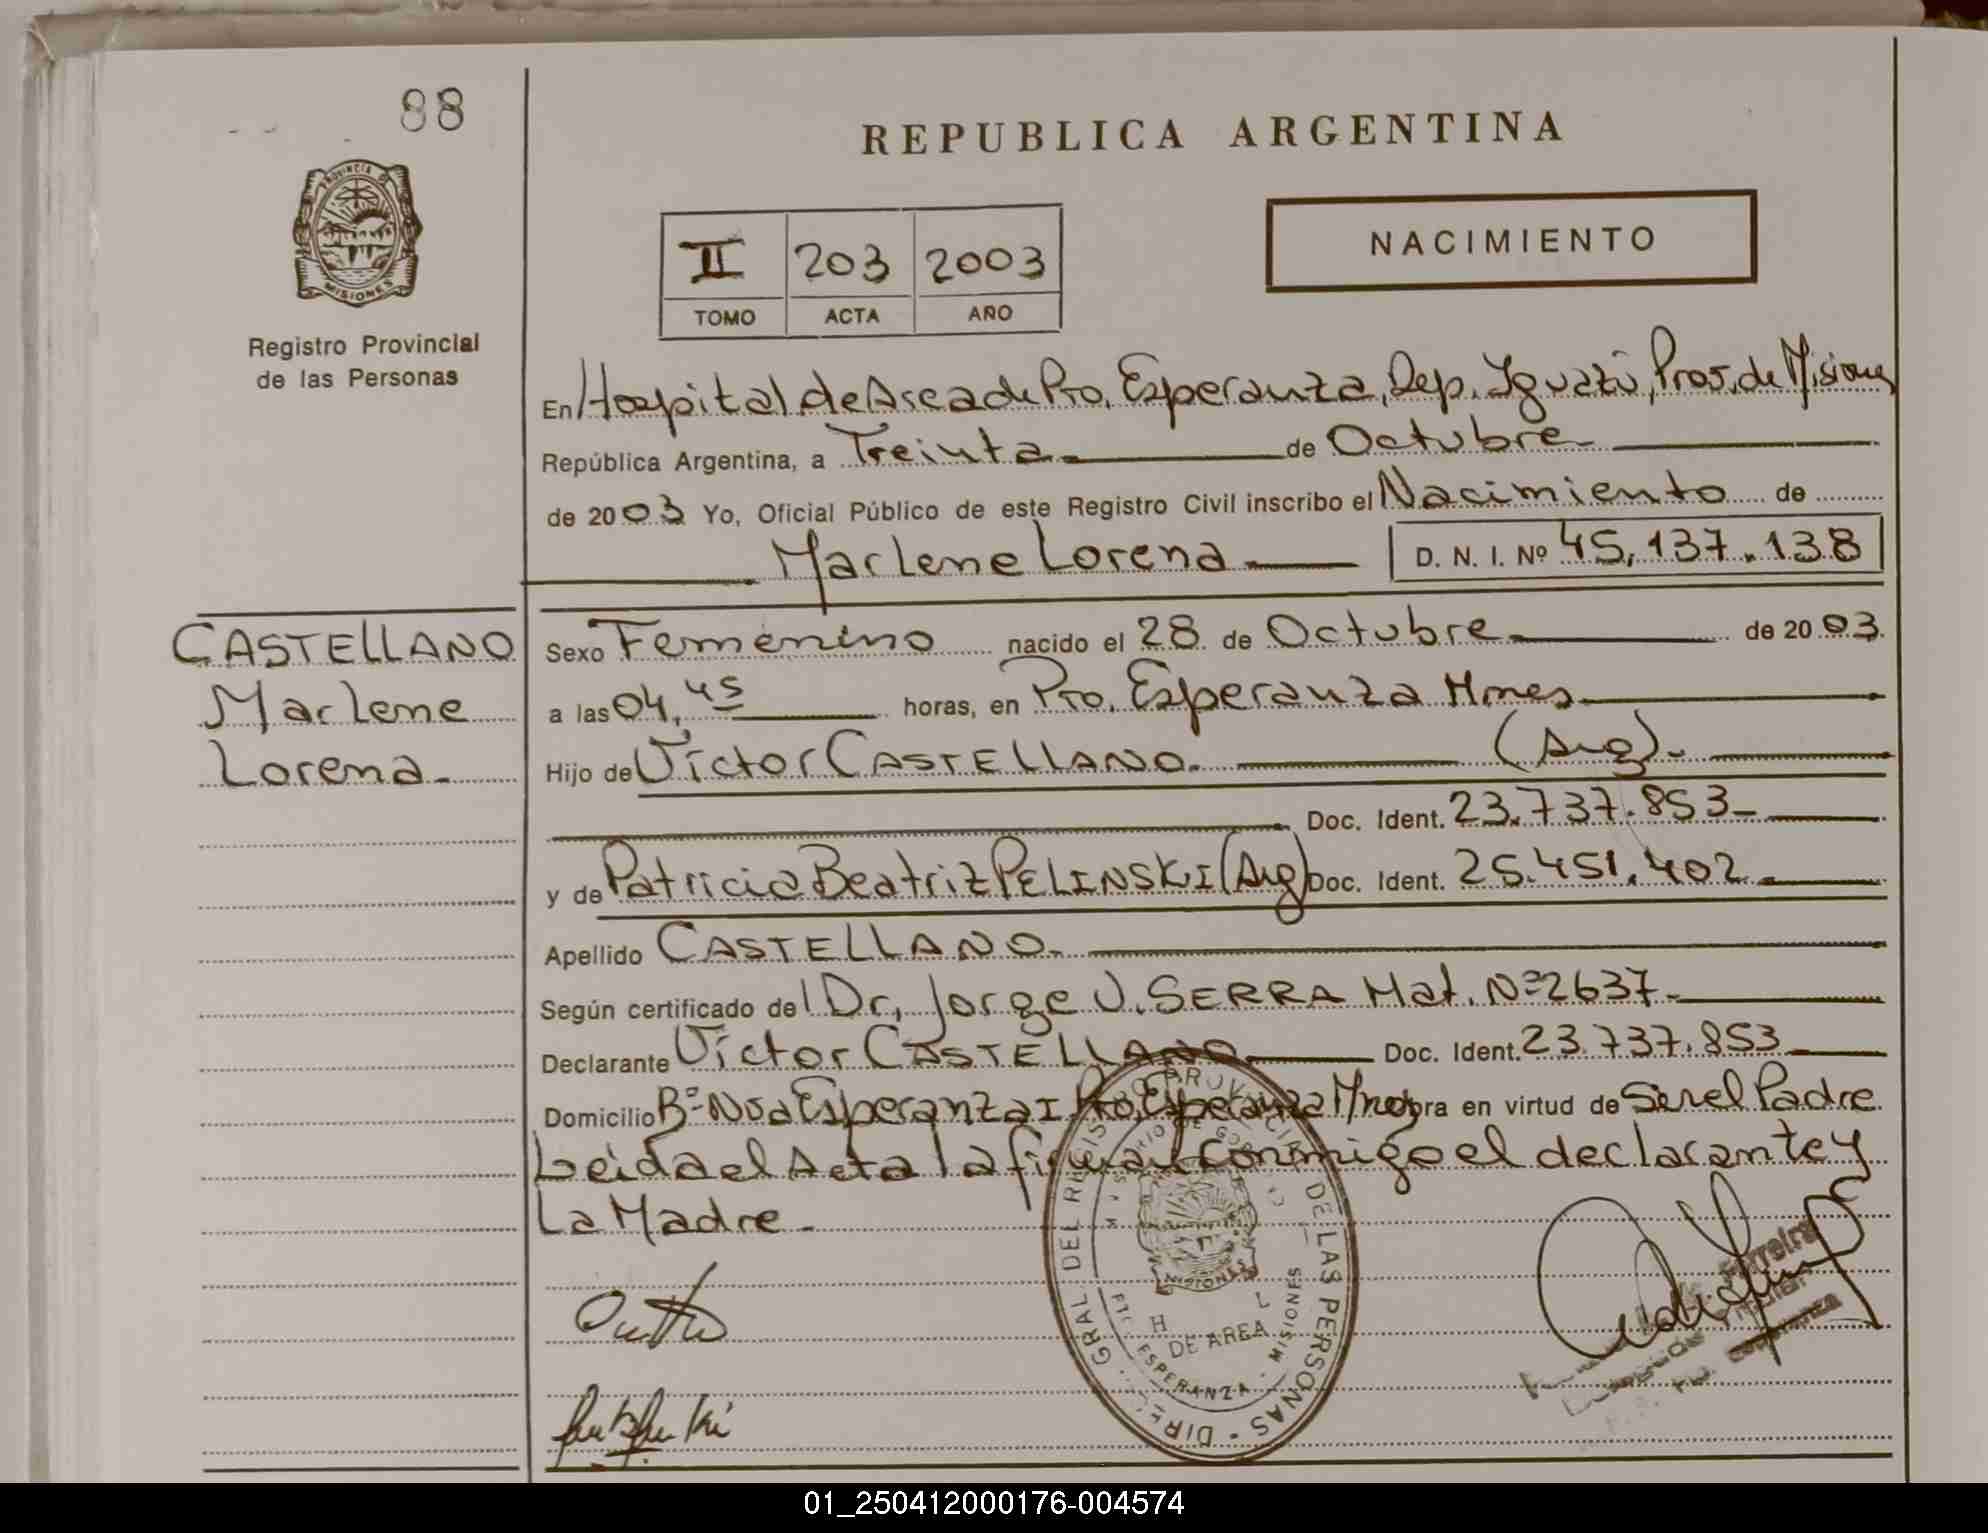 88
REPUBLICA ARGENTINA
PROVINCIA DE
MISIONES
Registro Provincial
de las Personas
II 203 2003
TOMO ACTA AÑO
NACIMIENTO
En Hospital de Area de Pto. Esperanza, Dep. Iguazú, Prov. de Misiones
República Argentina, a Treinta de Octubre
de 2003 Yo, Oficial Público de este Registro Civil inscribo el Nacimiento de
Marlene Lorena D. N. I. Nº 45.137.138
CASTELLANO
Marlene
Lorena.
Sexo Femenino nacido el 28 de Octubre de 2003.
a las 04,45 horas, en Pto. Esperanza Mnes
Hijo de Víctor CASTELLANO. (Arg).
Doc. Ident. 23.737.853
y de Patricia Beatriz PELINSKI (Arg) Doc. Ident. 25.451.402
Apellido CASTELLANO.
Según certificado del Dr. Jorge V. SERRA Mat. Nº 2637
Declarante Víctor CASTELLANO Doc. Ident. 23.737.853
Domicilio Bº Nva Esperanza I Pto. Esperanza Mnes obra en virtud de Ser el Padre
Leida el Acta la firman conmigo el declarante y
La Madre.
DIREC. GRAL DEL REGISTRO PROVINCIAL DE LAS PERSONAS
MISIONES
H L
DE AREA
ESPERANZA - MISIONES
01_250412000176-004574